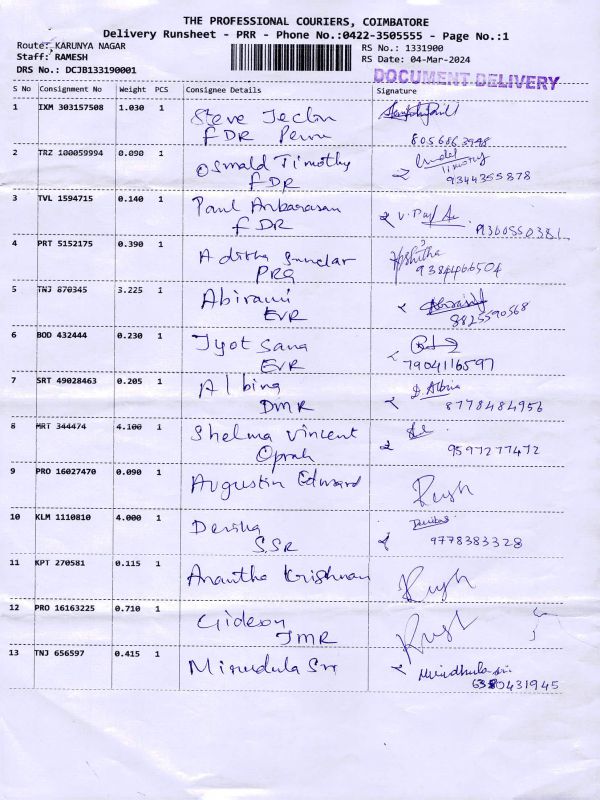 THE PROFESSIONAL COURIERS, COIMBATORE
Delivery Runsheet - PRR - Phone No.:0422-3505555 - Page No.:1
Route: KARUNYA NAGAR RS No.: 1331900
Staff: RAMESH RS Date: 04-Mar-2024
DRS No.: DCJB133190001 DOCUMENT DELIVERY
S No Consignment No Weight PCS Consignee Details Signature
1 IXM 303157508 1.030 1 Steve Jeclin
FDR Pennu 8056863998
2 TRZ 100059994 0.090 1 Oswald Timothy
FDR 9344355878
3 TVL 1594715 0.140 1 Paul Anbarasan
FDR 9360550381
4 PRT 5152175 0.390 1 Aditha Sundar
PRG 9384466504
5 TNJ 870345 3.225 1 Abirami
EVR 8825590568
6 BOD 432444 0.230 1 Jyot Sana
EVR 7904116597
7 SRT 49028463 0.205 1 Albina D. Albina
DMR 8778484956
8 MRT 344474 4.100 1 Shelma Vincent
Oprah 9597277472
9 PRO 16027470 0.090 1 Augustin Edward
10 KLM 1110810 4.000 1 Dersha
SSR 9778383328
11 KPT 270581 0.115 1 Anantha Krishnan
12 PRO 16163225 0.710 1 Gideon
JMR
13 TNJ 656597 0.415 1 Mirudula Sri
6380431945